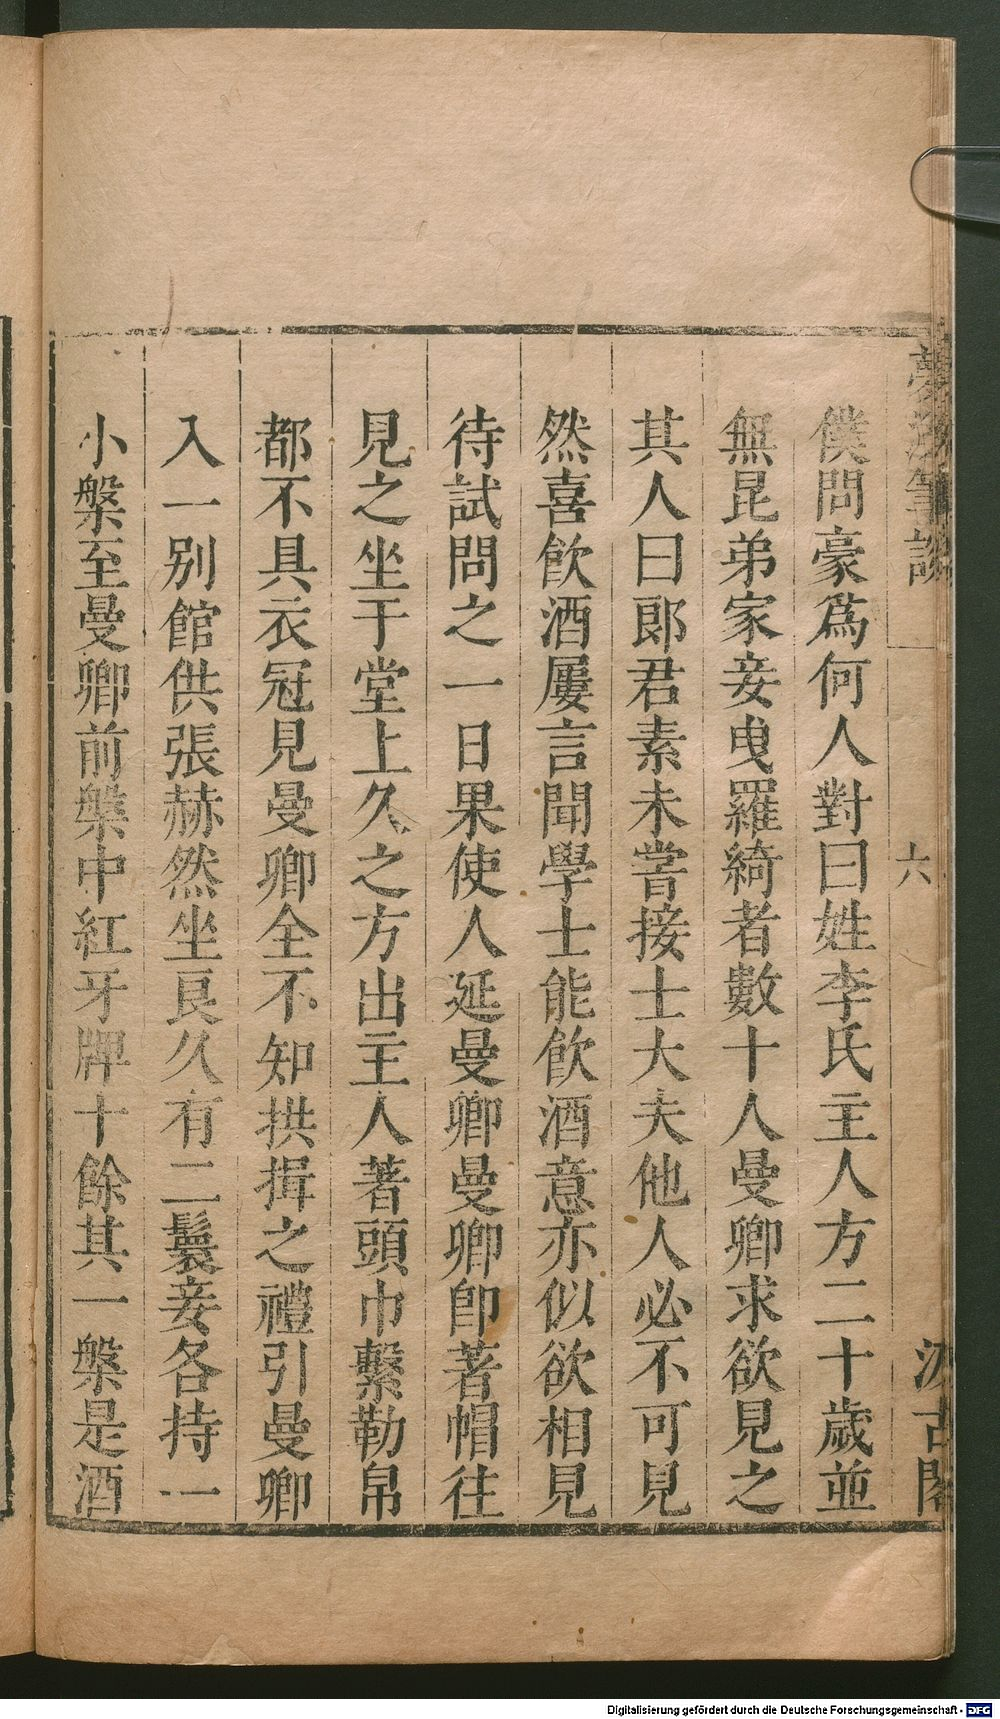 夢溪筆談
六
汲古閣
僕問豪爲何人對曰姓李氏主人方二十歲並
無昆弟家妾曳羅綺者數十人曼卿求欲見之
其人曰郎君素未嘗接士大夫他人必不可見
然喜飲酒屢言聞學士能飲酒意亦似欲相見
待試問之一日果使人延曼卿曼卿卽著帽往
見之坐于堂上久之方出主人著頭巾繫勒帛
都不具衣冠見曼卿全不知拱揖之禮引曼卿
入一別館供張赫然坐良久有二鬟妾各持一
小槃至曼卿前槃中紅牙牌十餘其一槃是酒
Digitalisierung gefördert durch die Deutsche Forschungsgemeinschaft - DFG